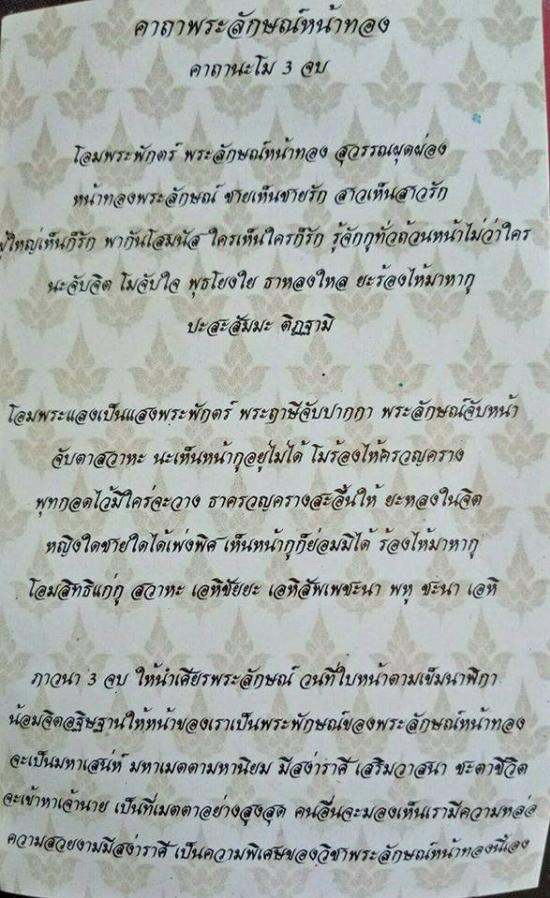 คาถาพระลักษณ์หน้าทอง
คาถานะโม 3 จบ
โอมพระพักตร์ พระลักษณ์หน้าทอง สุวรรณผุดผ่อง
หน้าทองพระลักษณ์ ชายเห็นชายรัก สาวเห็นสาวรัก
ผู้ใหญ่เห็นก็รัก พากันโสมนัส ใครเห็นใครก็รัก รู้จักกูทั่วถ้วนหน้าไม่ว่าใคร
นะจับจิต โมจับใจ พุธโยงใย ธาหลงใหล ยะร้องไห้มาหากู
ปะสะสัมมะ ติฏฐามิ
โอมพระแลงเป็นแสงพระพักตร์ พระฤาษีจับปากกา พระลักษณ์จับหน้า
จับตาสวาหะ นะเห็นหน้ากูอยู่ไม่ได้ โมร้องไห้ครวญคราง
พุทกอดไว้มิใคร่จะวาง ธาครวญครางสะอื้นให้ ยะหลงในจิต
หญิงใดชายใดได้เพ่งพิศ เห็นหน้ากูก็ย่อมมิได้ ร้องไห้มาหากู
โอมสิทธิแก่กู สวาหะ เอหิชัยยะ เอหิสัพเพชะนา พหู ชะนา เอหิ
ภาวนา 3 จบ ให้นำเศียรพระลักษณ์ วนที่ใบหน้าตามเข็มนาฬิกา
น้อมจิตอฐิษฐานให้หน้าของเราเป็นพระพักษณ์ของพระลักษณ์หน้าทอง
จะเป็นมหาเสน่ห์ มหาเมตตามหานิยม มีสง่าราศี เสริมวาสนา ชะตาชีวิต
จะเข้าหาเจ้านาย เป็นที่เมตตาอย่างสูงสุด คนอื่นจะมองเห็นเรามีความหล่อ
ความสวยงามมีสง่าราศี เป็นความพิเศษของวิชาพระลักษณ์หน้าทองนี้เอง